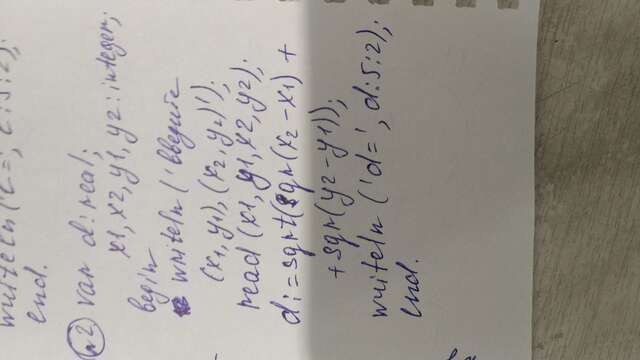 writeln('c=', c:5:2);
end.
№2 var d:real;
x1, x2, y1, y2:integer;
begin
writeln('введите
(x1, y1), (x2, y2)');
read(x1, y1, x2, y2);
d:=sqrt(sqr(x2-x1)+
+sqr(y2-y1));
writeln('d=', d:5:2);
end.